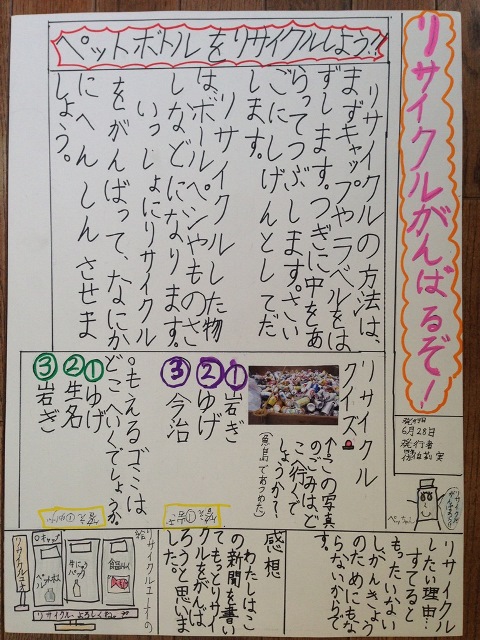 リサイクルがんばるぞ!
発行日
6月28日
発行者
ペットボトルをリサイクルしよう!!
リサイクルの方法は、
まずキャップやラベルをは
ずします。つぎに中をあ
らってつぶします。さい
ごにしげんとしてだ
します。
リサイクルした物
は、ボールペンやものさ
しなどになります。
いっしょにリサイクル
をがんばって、なにか
にへんしんさせま
しょう。
リサイクル
クイズ
↑この写真
のごみはど
こへ行くで
しょうか?
(魚島であつめた)
①岩ぎ
②ゆげ
③今治
。もえるゴミは
どこへいくでしょうか
①ゆげ
②生名
③岩ぎ
リサイクル
したい理由…
すてると
もったいない
し、かんきょう
のためにもな
らないからで
す。
感想
わたしはこ
の新聞を書い
てもっとリサイ
クルをがんば
ろうと思いま
した。
リサイクルエコ
キャップ
リサイクルよろしくね。